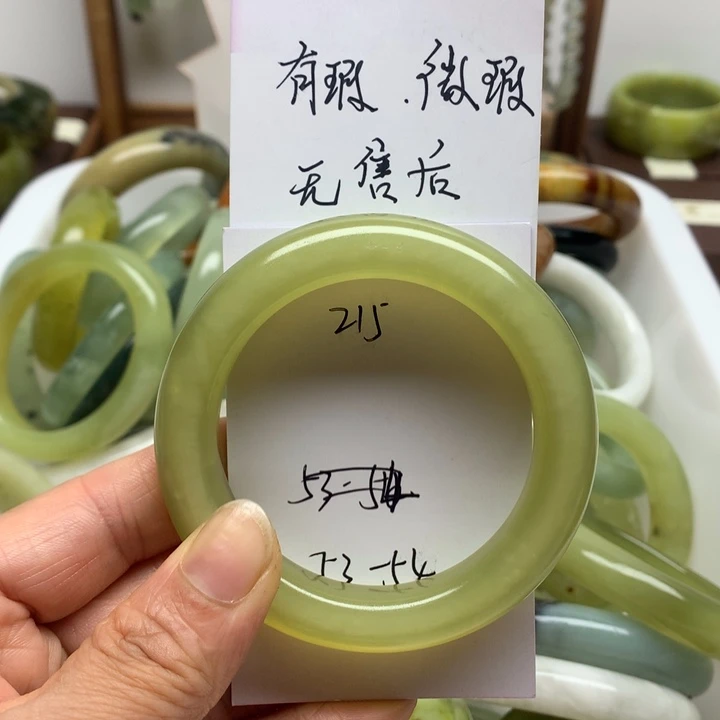 有瑕.微瑕
无售后
215
53-54